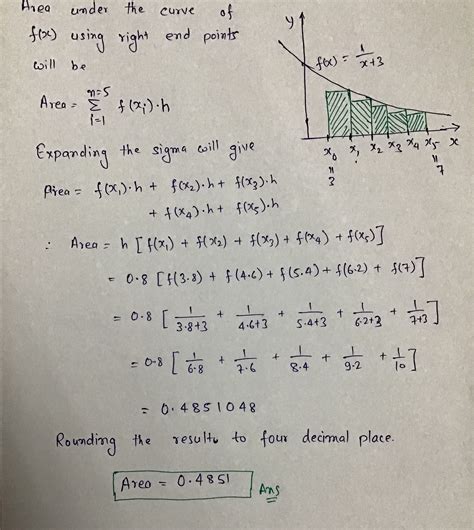 Area under the curve of
f(x) using right end points
will be
Area = Σ f(xi)·h
n=5
i=1
y
f(x) = 1/(x+3)
x0 x1 x2 x3 x4 x5 x
= =
3 7
Expanding the sigma will give
Area = f(x1)·h + f(x2)·h + f(x3)·h
+ f(x4)·h + f(x5)·h
∴ Area = h [f(x1) + f(x2) + f(x3) + f(x4) + f(x5)]
= 0.8 [f(3.8) + f(4.6) + f(5.4) + f(6.2) + f(7)]
= 0.8 [1/(3.8+3) + 1/(4.6+3) + 1/(5.4+3) + 1/(6.2+3) + 1/(7+3)]
= 0.8 [1/6.8 + 1/7.6 + 1/8.4 + 1/9.2 + 1/10]
= 0.4851048
Rounding the results to four decimal place.
Area = 0.4851 Ans